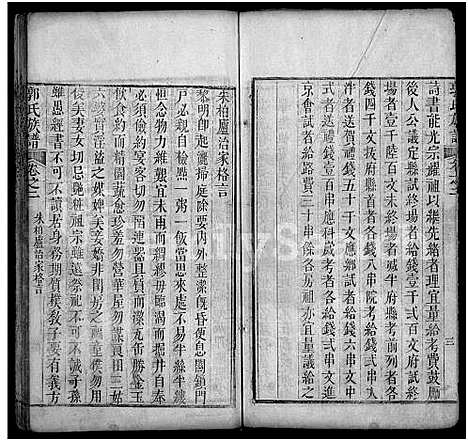 詩書能光宗耀祖以繼先緒者理宜量給考費鼓勵
後人公議定縣試終場者給錢壹千弍百文府終
場者壹千陸百文未終場者減半府縣考前列者給
錢四千文院考者各錢八百文院考給錢弍串入
泮者送錢五十千文應鄉試者給錢六串文中
式者送錢串應科歲考者各給錢弍串文
京會試者給路費三十串各房祖宗宜量議給之
三
朱柏廬治家格言
黎明即起灑掃庭除要內外整潔旣昏便息關鎖門
戶必親自檢點一粥一飯當思來處不易半絲半縷
恒念物力維艱宜未雨而綢繆毋臨渴而掘井自奉
必須儉約宴客切勿流連器具質而潔瓦缶勝金玉
飲食約而精園蔬愈珍羞勿營華屋勿謀良田三姑
六婆實淫盜之媒婢美妾嬌非閨房之福童僕勿用
俊美妻妾切忌艷粧祖宗雖遠祭祀不可不誠子孫
雖愚經書不可不讀居身務期質樸教子要有義
郭氏族譜
卷之二
朱柏廬治家格言